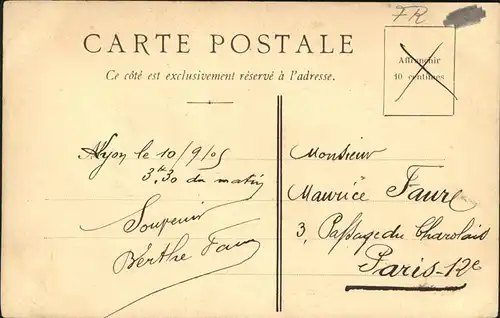 FR
CARTE POSTALE
Ce côté est exclusivement réservé à l'adresse.
Affranchir
10 centimes
Lyon le 10/9/05
3h30 du matin
Souvenir
Berthe Faure
Monsieur
Maurice Faure
3, Passage du Charolais
Paris-12e